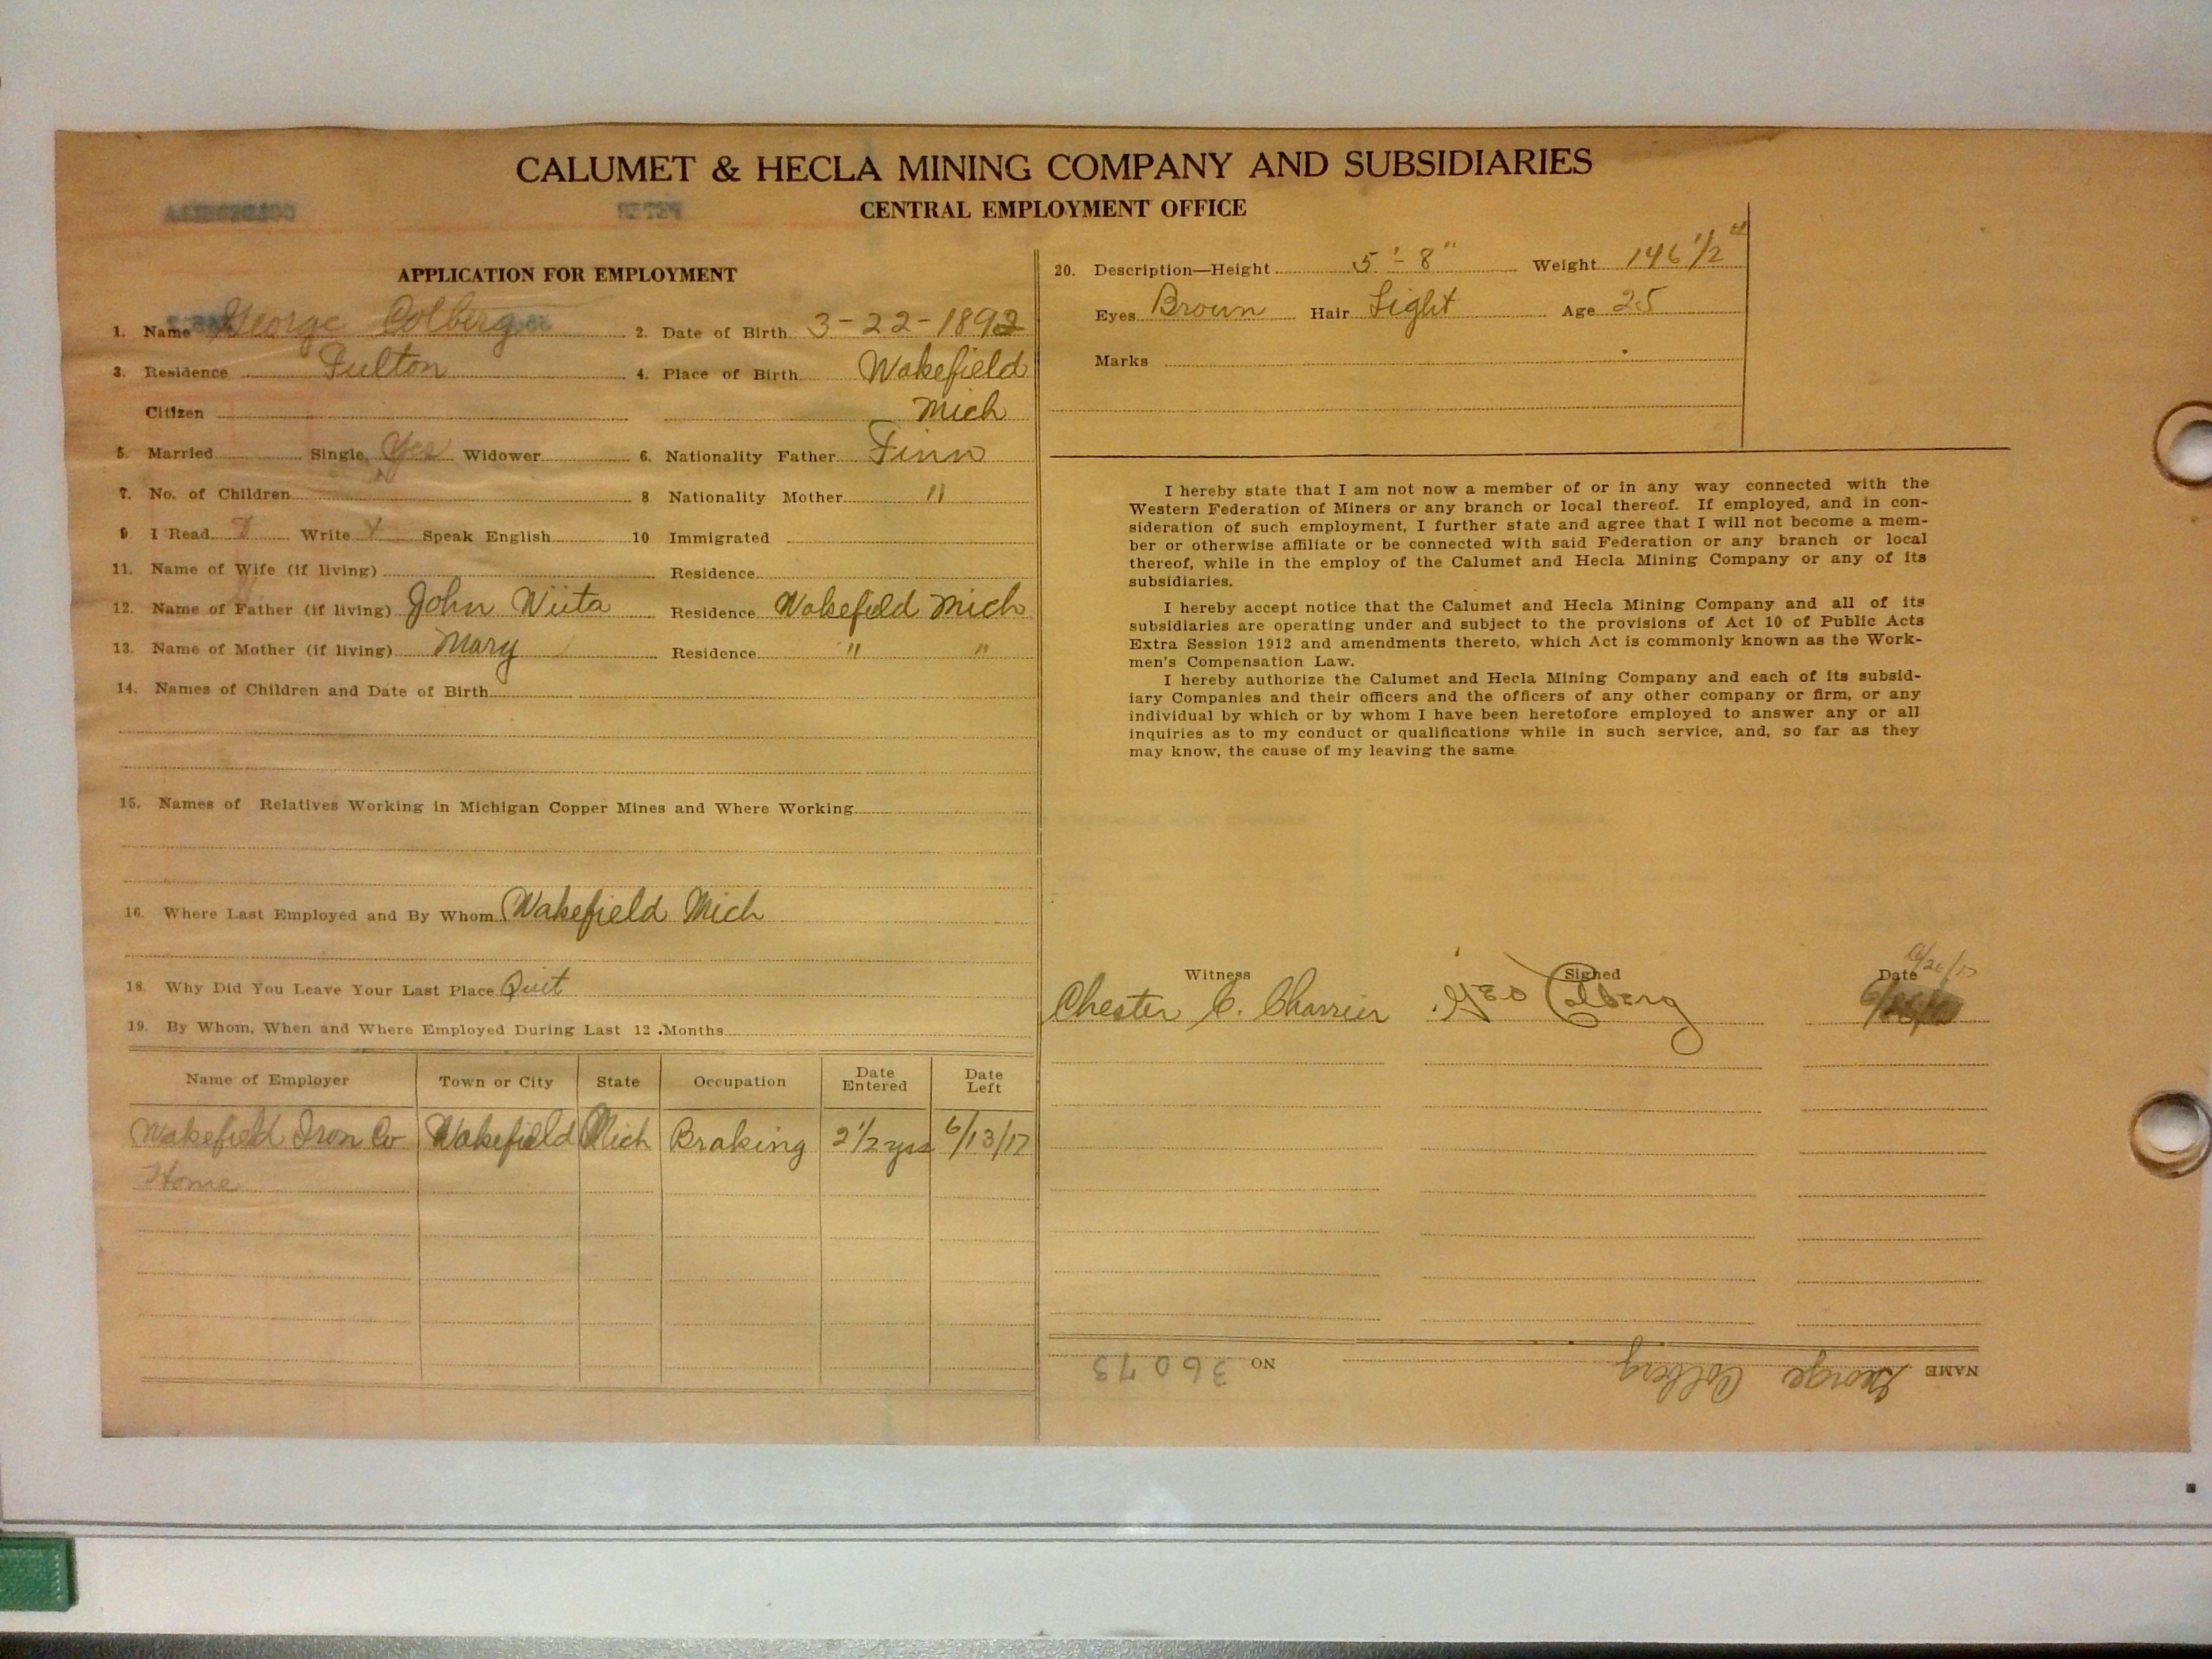 CALUMET & HECLA MINING COMPANY AND SUBSIDIARIES
CENTRAL EMPLOYMENT OFFICE
APPLICATION FOR EMPLOYMENT
1. Name George Colberg 2. Date of Birth 3-22-1892
3. Residence Fulton 4. Place of Birth Wakefield
Citizen Mich
5. Married Single Yes Widower 6. Nationality Father Finn
7. No. of Children 8 Nationality Mother "
9 I Read Write Speak English 10 Immigrated
11. Name of Wife (if living) Residence
12. Name of Father (if living) John Wiita Residence Wakefield Mich
13. Name of Mother (if living) Mary Residence " "
14. Names of Children and Date of Birth
15. Names of Relatives Working in Michigan Copper Mines and Where Working
16. Where Last Employed and By Whom Wakefield Mich
18. Why Did You Leave Your Last Place Quit
19. By Whom, When and Where Employed During Last 12 Months
Name of Employer Town or City State Occupation Date Entered Date Left
Wakefield Iron Co Wakefield Mich Braking 2 1/2 yrs 6/13/17
Home
20. Description—Height 5'-8" Weight 146 1/2 #
Eyes Brown Hair Light Age 25
Marks
I hereby state that I am not now a member of or in any way connected with the
Western Federation of Miners or any branch or local thereof. If employed, and in con-
sideration of such employment, I further state and agree that I will not become a mem-
ber or otherwise affiliate or be connected with said Federation or any branch or local
thereof, while in the employ of the Calumet and Hecla Mining Company or any of its
subsidiaries.
I hereby accept notice that the Calumet and Hecla Mining Company and all of its
subsidiaries are operating under and subject to the provisions of Act 10 of Public Acts
Extra Session 1912 and amendments thereto, which Act is commonly known as the Work-
men's Compensation Law.
I hereby authorize the Calumet and Hecla Mining Company and each of its subsid-
iary Companies and their officers and the officers of any other company or firm, or any
individual by which or by whom I have been heretofore employed to answer any or all
inquiries as to my conduct or qualifications while in such service, and, so far as they
may know, the cause of my leaving the same
6/26/17
Witness Signed Date
Chester C. Charrier Geo Colberg
NAME George Colberg NO 36073